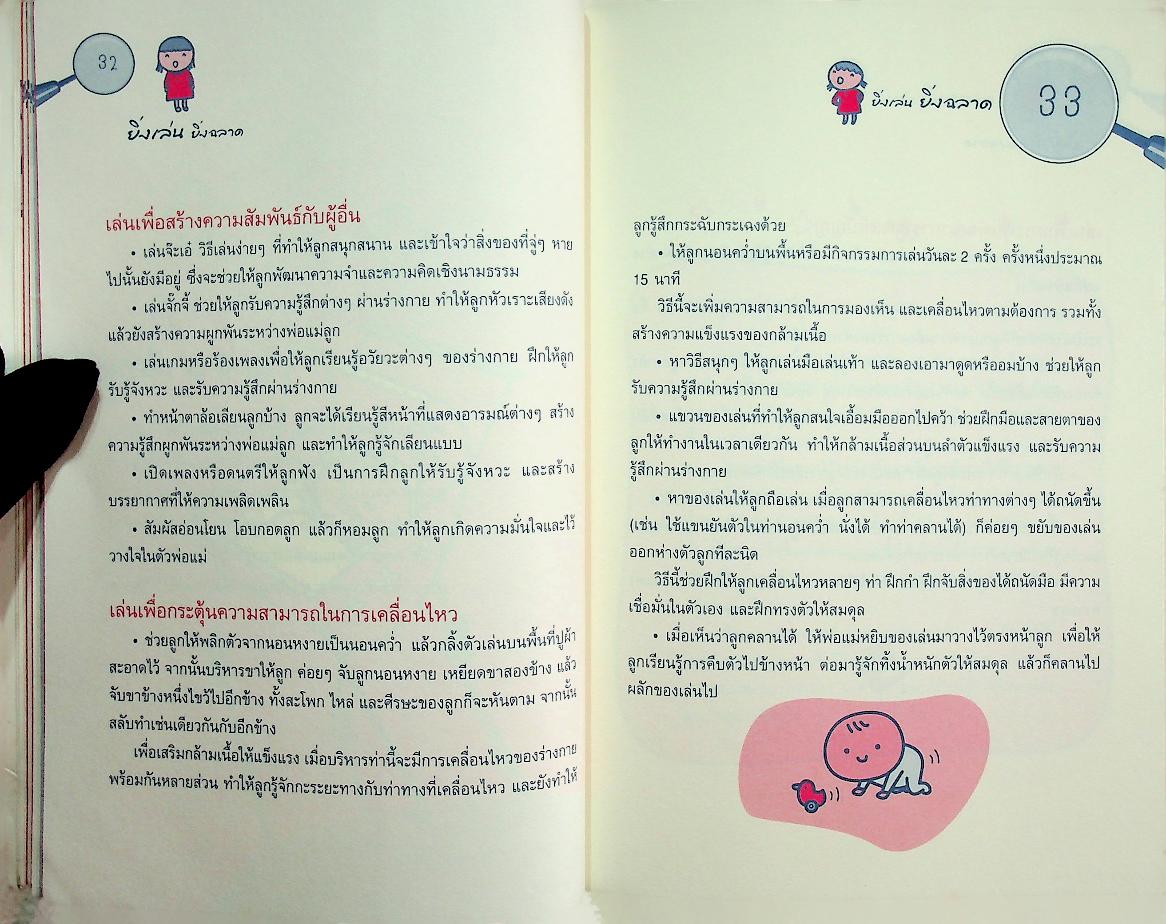 32
ยิ่งเล่น ยิ่งฉลาด
เล่นเพื่อสร้างความสัมพันธ์กับผู้อื่น
• เล่นจ๊ะเอ๋ วิธีเล่นง่ายๆ ที่ทำให้ลูกสนุกสนาน และเข้าใจว่าสิ่งของที่จู่ๆ หาย
ไปนั้นยังมีอยู่ ซึ่งจะช่วยให้ลูกพัฒนาความจำและความคิดเชิงนามธรรม
• เล่นจั๊กจี้ ช่วยให้ลูกรับความรู้สึกต่างๆ ผ่านร่างกาย ทำให้ลูกหัวเราะเสียงดัง
แล้วยังสร้างความผูกพันระหว่างพ่อแม่ลูก
• เล่นเกมหรือร้องเพลงเพื่อให้ลูกเรียนรู้อวัยวะต่างๆ ของร่างกาย ฝึกให้ลูก
รับรู้จังหวะ และรับความรู้สึกผ่านร่างกาย
• ทำหน้าตาล้อเลียนลูกบ้าง ลูกจะได้เรียนรู้สีหน้าที่แสดงอารมณ์ต่างๆ สร้าง
ความรู้สึกผูกพันระหว่างพ่อแม่ลูก และทำให้ลูกรู้จักเลียนแบบ
• เปิดเพลงหรือดนตรีให้ลูกฟัง เป็นการฝึกลูกให้รับรู้จังหวะ และสร้าง
บรรยากาศที่ให้ความเพลิดเพลิน
• สัมผัสอ่อนโยน โอบกอดลูก แล้วก็หอมลูก ทำให้ลูกเกิดความมั่นใจและไว้
วางใจในตัวพ่อแม่
เล่นเพื่อกระตุ้นความสามารถในการเคลื่อนไหว
• ช่วยลูกให้พลิกตัวจากนอนหงายเป็นนอนคว่ำ แล้วกลิ้งตัวเล่นบนพื้นที่ปูผ้า
สะอาดไว้ จากนั้นบริหารขาให้ลูก ค่อยๆ จับลูกนอนหงาย เหยียดขาสองข้าง แล้ว
จับขาข้างหนึ่งไขว้ไปอีกข้าง ทั้งสะโพก ไหล่ และศีรษะของลูกก็จะหันตาม จากนั้น
สลับทำเช่นเดียวกันกับอีกข้าง
เพื่อเสริมกล้ามเนื้อให้แข็งแรง เมื่อบริหารท่านี้จะมีการเคลื่อนไหวของร่างกาย
พร้อมกันหลายส่วน ทำให้ลูกรู้จักกะระยะทางกับท่าทางที่เคลื่อนไหว และยังทำให้
ยิ่งเล่น ยิ่งฉลาด
33
ลูกรู้สึกกระฉับกระเฉงด้วย
• ให้ลูกนอนคว่ำบนพื้นหรือมีกิจกรรมการเล่นวันละ 2 ครั้ง ครั้งหนึ่งประมาณ
15 นาที
วิธีนี้จะเพิ่มความสามารถในการมองเห็น และเคลื่อนไหวตามต้องการ รวมทั้ง
สร้างความแข็งแรงของกล้ามเนื้อ
• หาวิธีสนุกๆ ให้ลูกเล่นมือเล่นเท้า และลองเอามาดูดหรืออมบ้าง ช่วยให้ลูก
รับความรู้สึกผ่านร่างกาย
• แขวนของเล่นที่ทำให้ลูกสนใจเอื้อมมือออกไปคว้า ช่วยฝึกมือและสายตาของ
ลูกให้ทำงานในเวลาเดียวกัน ทำให้กล้ามเนื้อส่วนบนลำตัวแข็งแรง และรับความ
รู้สึกผ่านร่างกาย
• หาของเล่นให้ลูกถือเล่น เมื่อลูกสามารถเคลื่อนไหวท่าทางต่างๆ ได้ถนัดขึ้น
(เช่น ใช้แขนยันตัวในท่านอนคว่ำ นั่งได้ ทำท่าคลานได้) ก็ค่อยๆ ขยับของเล่น
ออกห่างตัวลูกทีละนิด
วิธีนี้ช่วยฝึกให้ลูกเคลื่อนไหวหลายๆ ท่า ฝึกกำ ฝึกจับสิ่งของได้ถนัดมือ มีความ
เชื่อมั่นในตัวเอง และฝึกทรงตัวให้สมดุล
• เมื่อเห็นว่าลูกคลานได้ ให้พ่อแม่หยิบของเล่นมาวางไว้ตรงหน้าลูก เพื่อให้
ลูกเรียนรู้การคืบตัวไปข้างหน้า ต่อมารู้จักทิ้งน้ำหนักตัวให้สมดุล แล้วก็คลานไป
ผลักของเล่นไป